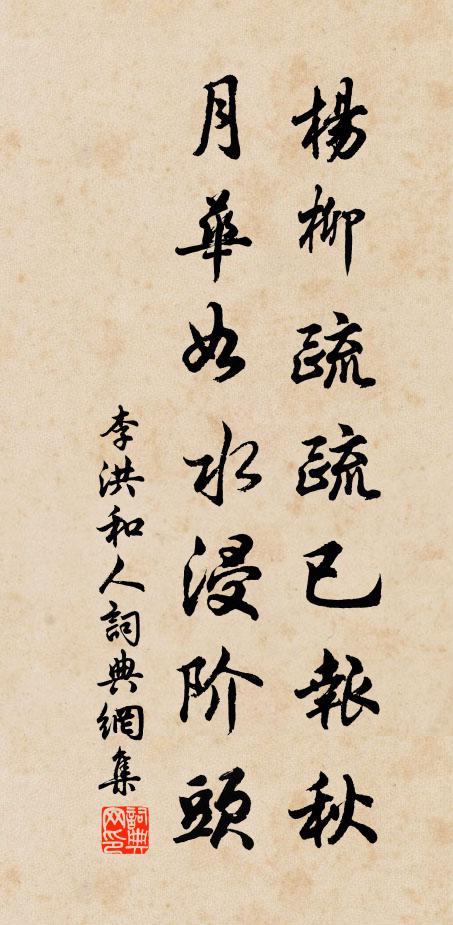 楊柳疏疏已報秋
月華如水浸阶頭
李洪和人詞典網集
詞典
网印